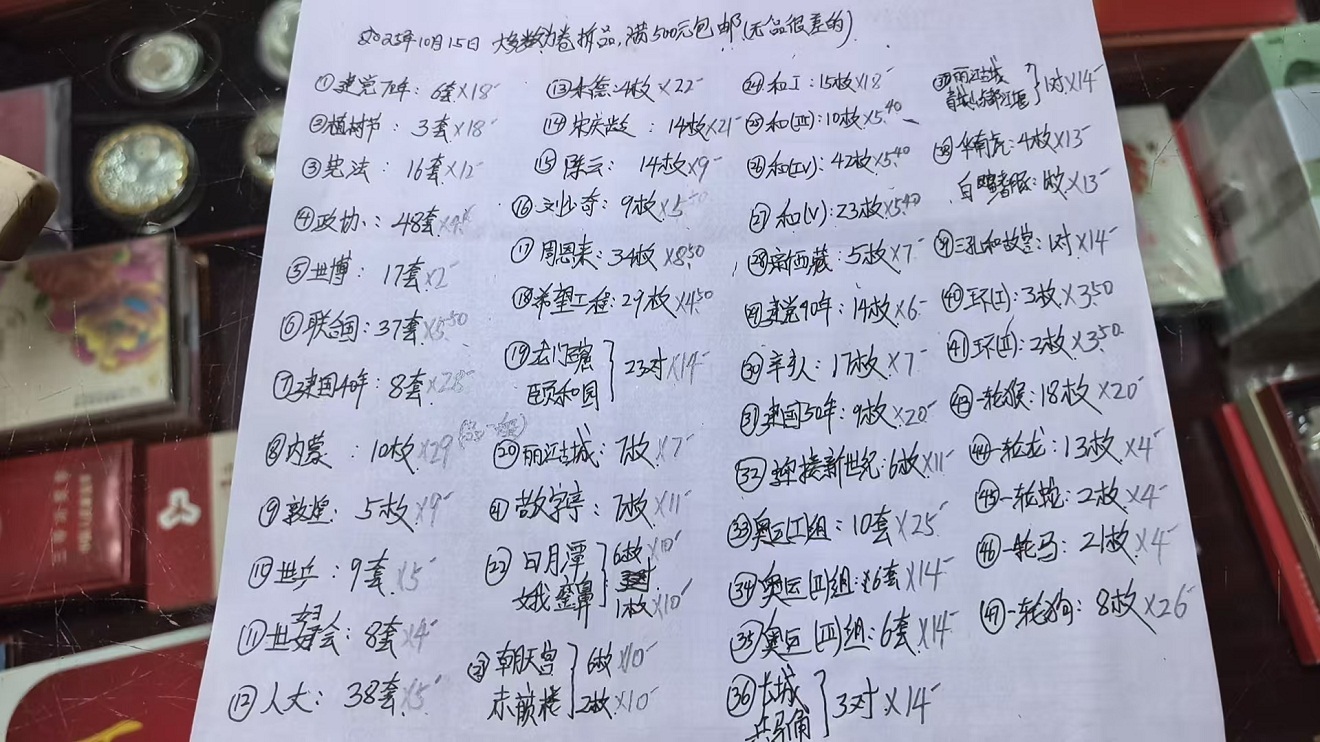 2025年10月15日 大多数为卷拆品,满500元包邮(无品很差的)
①建党70年: 6套×18-
②植树节: 3套×18-
③宪法: 16套×12-
④政协: 48套
⑤世博: 17套×2-
⑥联合国: 37套×5.50
⑦建国40年: 8套
⑧内蒙: 10枚×29
⑨敦煌: 5枚×9-
⑩世乒: 9套×5-
⑪世妇会: 8套×4-
⑫人大: 38套×5-
⑬ 4枚×22-
⑭宋庆龄: 14枚×21-
⑮陈云: 14枚×9-
⑯刘少奇: 9枚
⑰周恩来: 34枚×8.50
⑱希望工程: 29枚×4.50
⑲龙门石窟
颐和园 } 23对×14-
⑳丽江古城: 7枚×7-
㉑敬字亭: 7枚×11-
㉒日月潭 } 6枚×10-
鹅銮鼻 1枚×10-
㉓朝天宫 } 6枚×10-
赤嵌楼 2枚×10-
㉔和I: 15枚×18-
㉕和(III): 10枚×5.40
㉖和(IV): 42枚×5.40
㉗和(V): 23枚×5.40
㉘西藏: 5枚×7-
㉙建党90年: 14枚×6-
㉚辛亥: 17枚×7-
㉛建国50年: 9枚×20-
㉜迎接新世纪: 6枚×11-
㉝奥运I组: 10套×25-
㉞奥运 组: 6套×14-
㉟奥运 组: 6套×14-
㊱长城 } 3对×14-
㊲丽江古城
青城山都江堰 } 1对×14-
㊳华南虎: 4枚×13-
白鳍豚: 枚×13-
㊴三孔和故宫: 1对×14-
㊵环(I): 3枚×3.50
㊶环: 2枚×3.50
㊸一轮猴: 18枚×20-
㊹一轮龙: 13枚×4-
㊺一轮蛇: 2枚×4-
㊻一轮马: 21枚×4-
㊼一轮狗: 8枚×26-